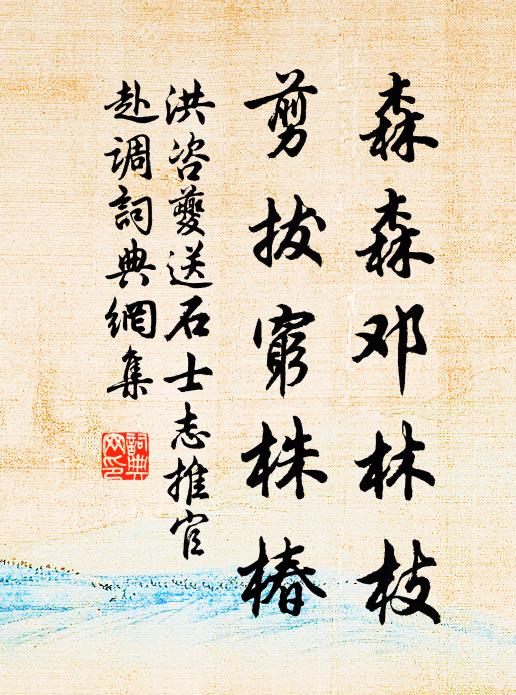 森森邓林枝
剪拔窮株椿
洪咨夔送石士志推官
赴調詞典網集
詞典網印